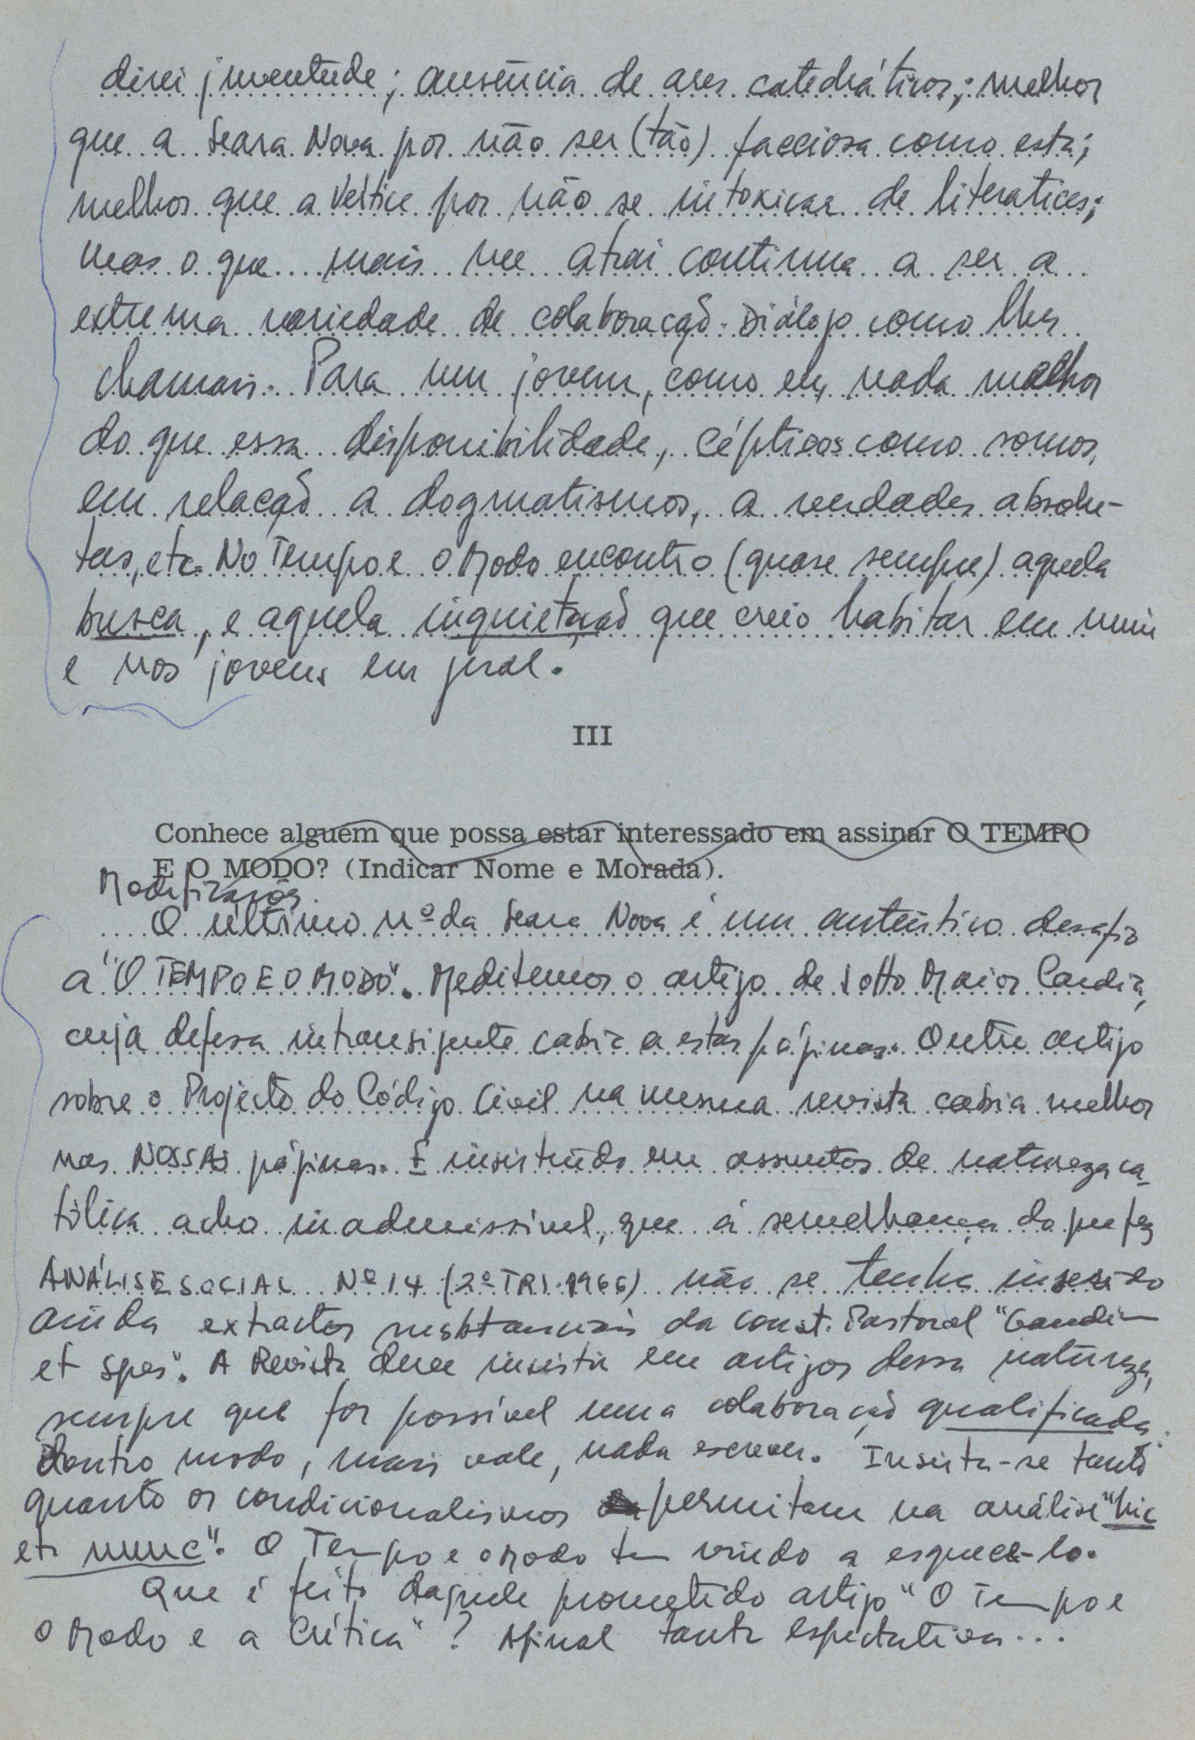 direi juventude; ausência de ares catedráticos; melhor
que a Seara Nova por não ser (tão) facciosa como esta;
melhor que a Vértice por não se intoxicar de literatices;
mas o que mais me atrai continua a ser a
extrema variedade de colaboração. Diálogo como lhe
chamais. Para um jovem, como eu, nada melhor
do que essa disponibilidade, cépticos como somos,
em relação a dogmatismos, a verdades absolu-
tas, etc. No Tempo e o Modo encontro (quase sempre) aquela
busca, e aquela inquietação que creio habitar em mim
e nos jovens em geral.
III
Conhece alguém que possa estar interessado em assinar O TEMPO
E O MODO? (Indicar Nome e Morada).
Modificações
O último nº da Seara Nova é um autêntico desafio
a "O TEMPO E O MODO". Meditemos o artigo de Sotto Maior Cardia,
cuja defesa intransigente cabia a estas páginas. Outro artigo
sobre o Projecto do Código Civil na mesma revista cabia melhor
nas NOSSAS páginas. E insistindo em assuntos de natureza ca-
tólica acho inadmissível, que à semelhança do que fez
ANÁLISE SOCIAL Nº 14 (2º TRI. 1966) não se tenha inserido
ainda extractos substanciais da const. Pastoral "Gaudium
et Spes". A Revista deve insistir em artigos dessa natureza,
sempre que for possível uma colaboração qualificada.
Doutro modo, mais vale, nada escrever. Insista-se tanto
quanto os condicionalismos permitam na análise "hic
et nunc". O Tempo e o Modo tem vindo a esquecê-lo.
Que é feito daquele prometido artigo "O Tempo e
o Modo e a Crítica"? Afinal tanta expectativa...